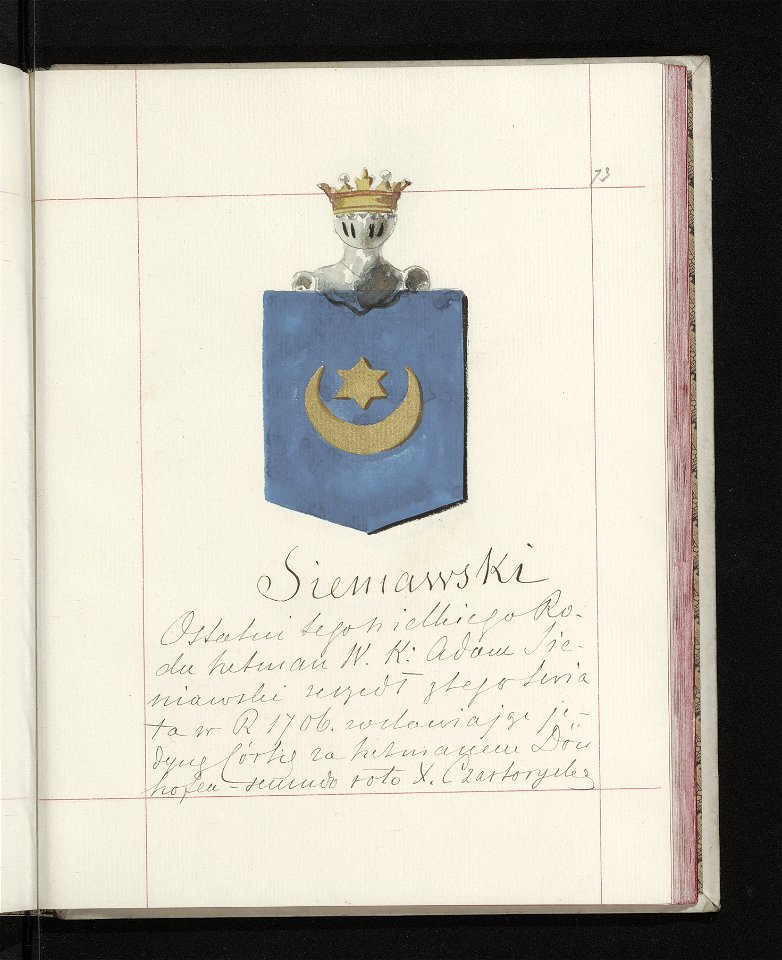 73
Sieniawski
Ostatni tego wielkiego Ro-
du hetman W. K: Adam Sie-
niawski zeszedł z tego świa
ta w R 1706. zostawiając je-
dyną Córkię za hetmanem Dön
hofem – secundo voto X. Czartoryską